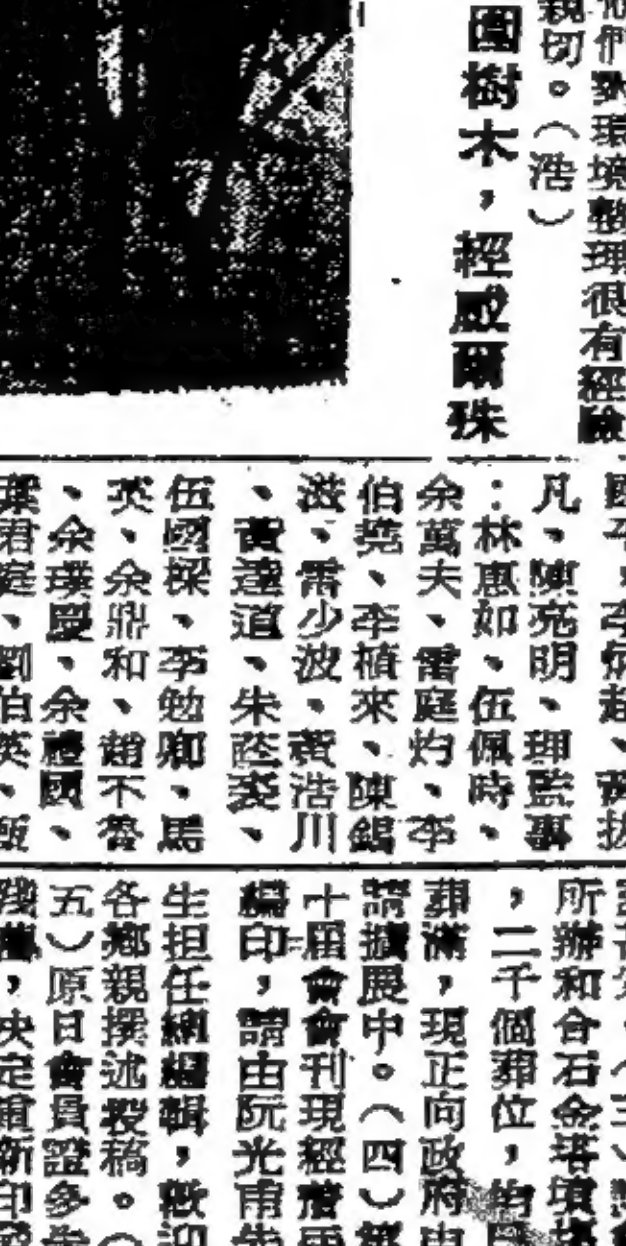 他們對環境整理很有經驗
親切。（浩）
園樹木，經威爾珠
凡、陳亮明、理監事
：林惠如、伍佩時、
余萬夫、雷庭灼、李
伯堯、李植來、陳錫
滋、雷少波、黃浩川
、黃達道、朱
伍國琛、李勉卿、馬
英、余鼎和、趙不
、余璞慶、余禮國、
葉君庭、劉伯英、甄
所辦和合石金塔墳場
，二千個葬位，
葬滿，現正向政府申
請擴展中。（四）
十屆會會刊現經
編印，請由阮光甫先
生担任總編輯，歡迎
各鄉親撰述投稿。（
五）原日會員證多
殘，决定重新印發